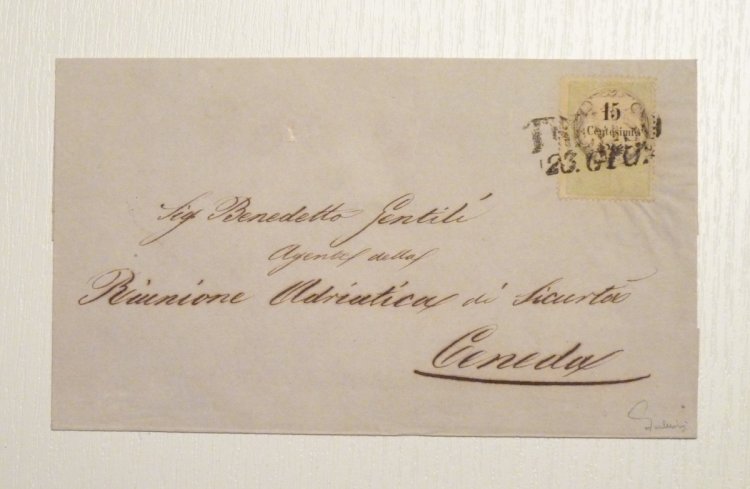 15
Centesimi
23. GIU.
Sig Benedetto Gentili
Agente della
Riunione Adriatica di Sicurtà
Ceneda